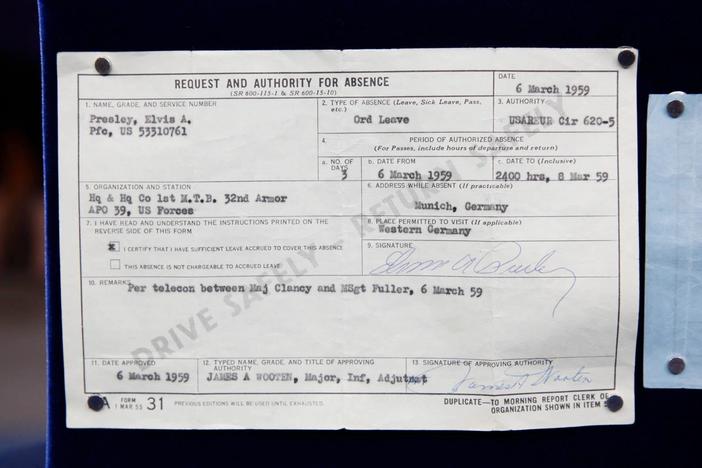 REQUEST AND AUTHORITY FOR ABSENCE
(SR 600-115-1 & SR 600-15-10)
DATE
6 March 1959
1. NAME, GRADE, AND SERVICE NUMBER
Presley, Elvis A.
Pfc, US 53310761
2. TYPE OF ABSENCE (Leave, Sick Leave, Pass, etc.)
Ord Leave
3. AUTHORITY
USAREUR Cir 620-5
4. PERIOD OF AUTHORIZED ABSENCE
(For Passes, include hours of departure and return)
a. NO. OF DAYS
3
b. DATE FROM
6 March 1959
c. DATE TO (Inclusive)
2400 hrs, 8 Mar 59
5. ORGANIZATION AND STATION
Hq & Hq Co 1st M.T.B. 32nd Armor
APO 39, US Forces
6. ADDRESS WHILE ABSENT (If practicable)
Munich, Germany
7. I HAVE READ AND UNDERSTAND THE INSTRUCTIONS PRINTED ON THE
REVERSE SIDE OF THIS FORM
I CERTIFY THAT I HAVE SUFFICIENT LEAVE ACCRUED TO COVER THIS ABSENCE
THIS ABSENCE IS NOT CHARGEABLE TO ACCRUED LEAVE
8. PLACE PERMITTED TO VISIT (If applicable)
Western Germany
9. SIGNATURE
Elvis A Presley
10. REMARKS
Per telecon between Maj Clancy and MSgt Fuller, 6 March 59
DRIVE SAFELY — RETURN SAFELY
11. DATE APPROVED
6 March 1959
12. TYPED NAME, GRADE, AND TITLE OF APPROVING
AUTHORITY
JAMES A WOOTEN, Major, Inf, Adjutnat
13. SIGNATURE OF APPROVING AUTHORITY
James A Wooten
A FORM 31
1 MAR 55
PREVIOUS EDITIONS WILL BE USED UNTIL EXHAUSTED.
DUPLICATE—TO MORNING REPORT CLERK OF
ORGANIZATION SHOWN IN ITEM